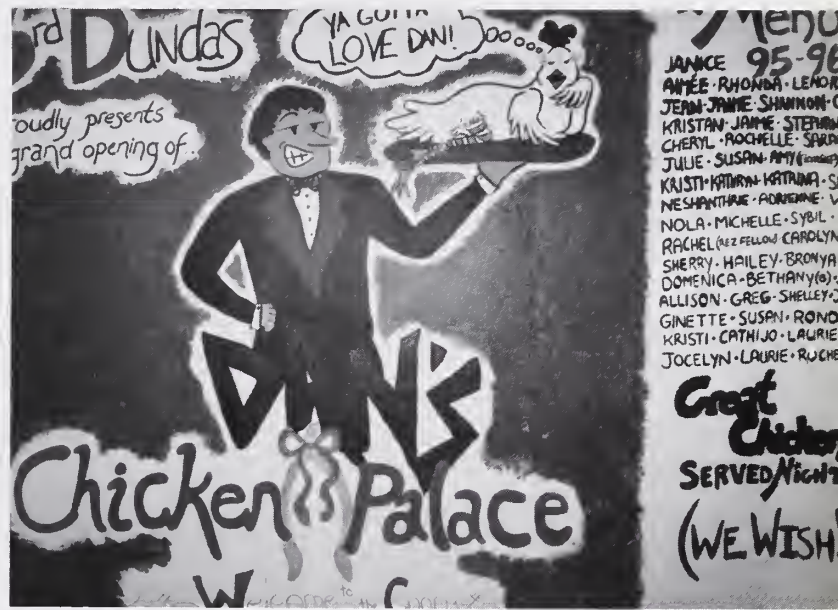 3rd DUNDAS
YA GOTTA
LOVE DAN!
oudly presents
grand opening of..
DAN'S
Chicken Palace
Menu
95-96
JANICE
AIMÉE · RHONDA · LENOR
JEAN · JAMIE · SHANNON
KRISTAN · JAIME · STEPHAN
CHERYL · ROCHELLE · SARA
JULIE · SUSAN · AMY
KRISTI · KATHRYN · KATRINA · S
NESHANTHRIE · ADRIENNE · V
NOLA · MICHELLE · SYBIL ·
RACHEL (REZ FELLOW) CAROLYN
SHERRY · HAILEY · BRONYA
DOMENICA · BETHANY(8) ·
ALLISON · GREG · SHELLEY · J
GINETTE · SUSAN · ROND
KRISTI · CATHIJO · LAURIE
JOCELYN · LAURIE · RUCHE
Great
Chicken
SERVED Night
(WE WISH